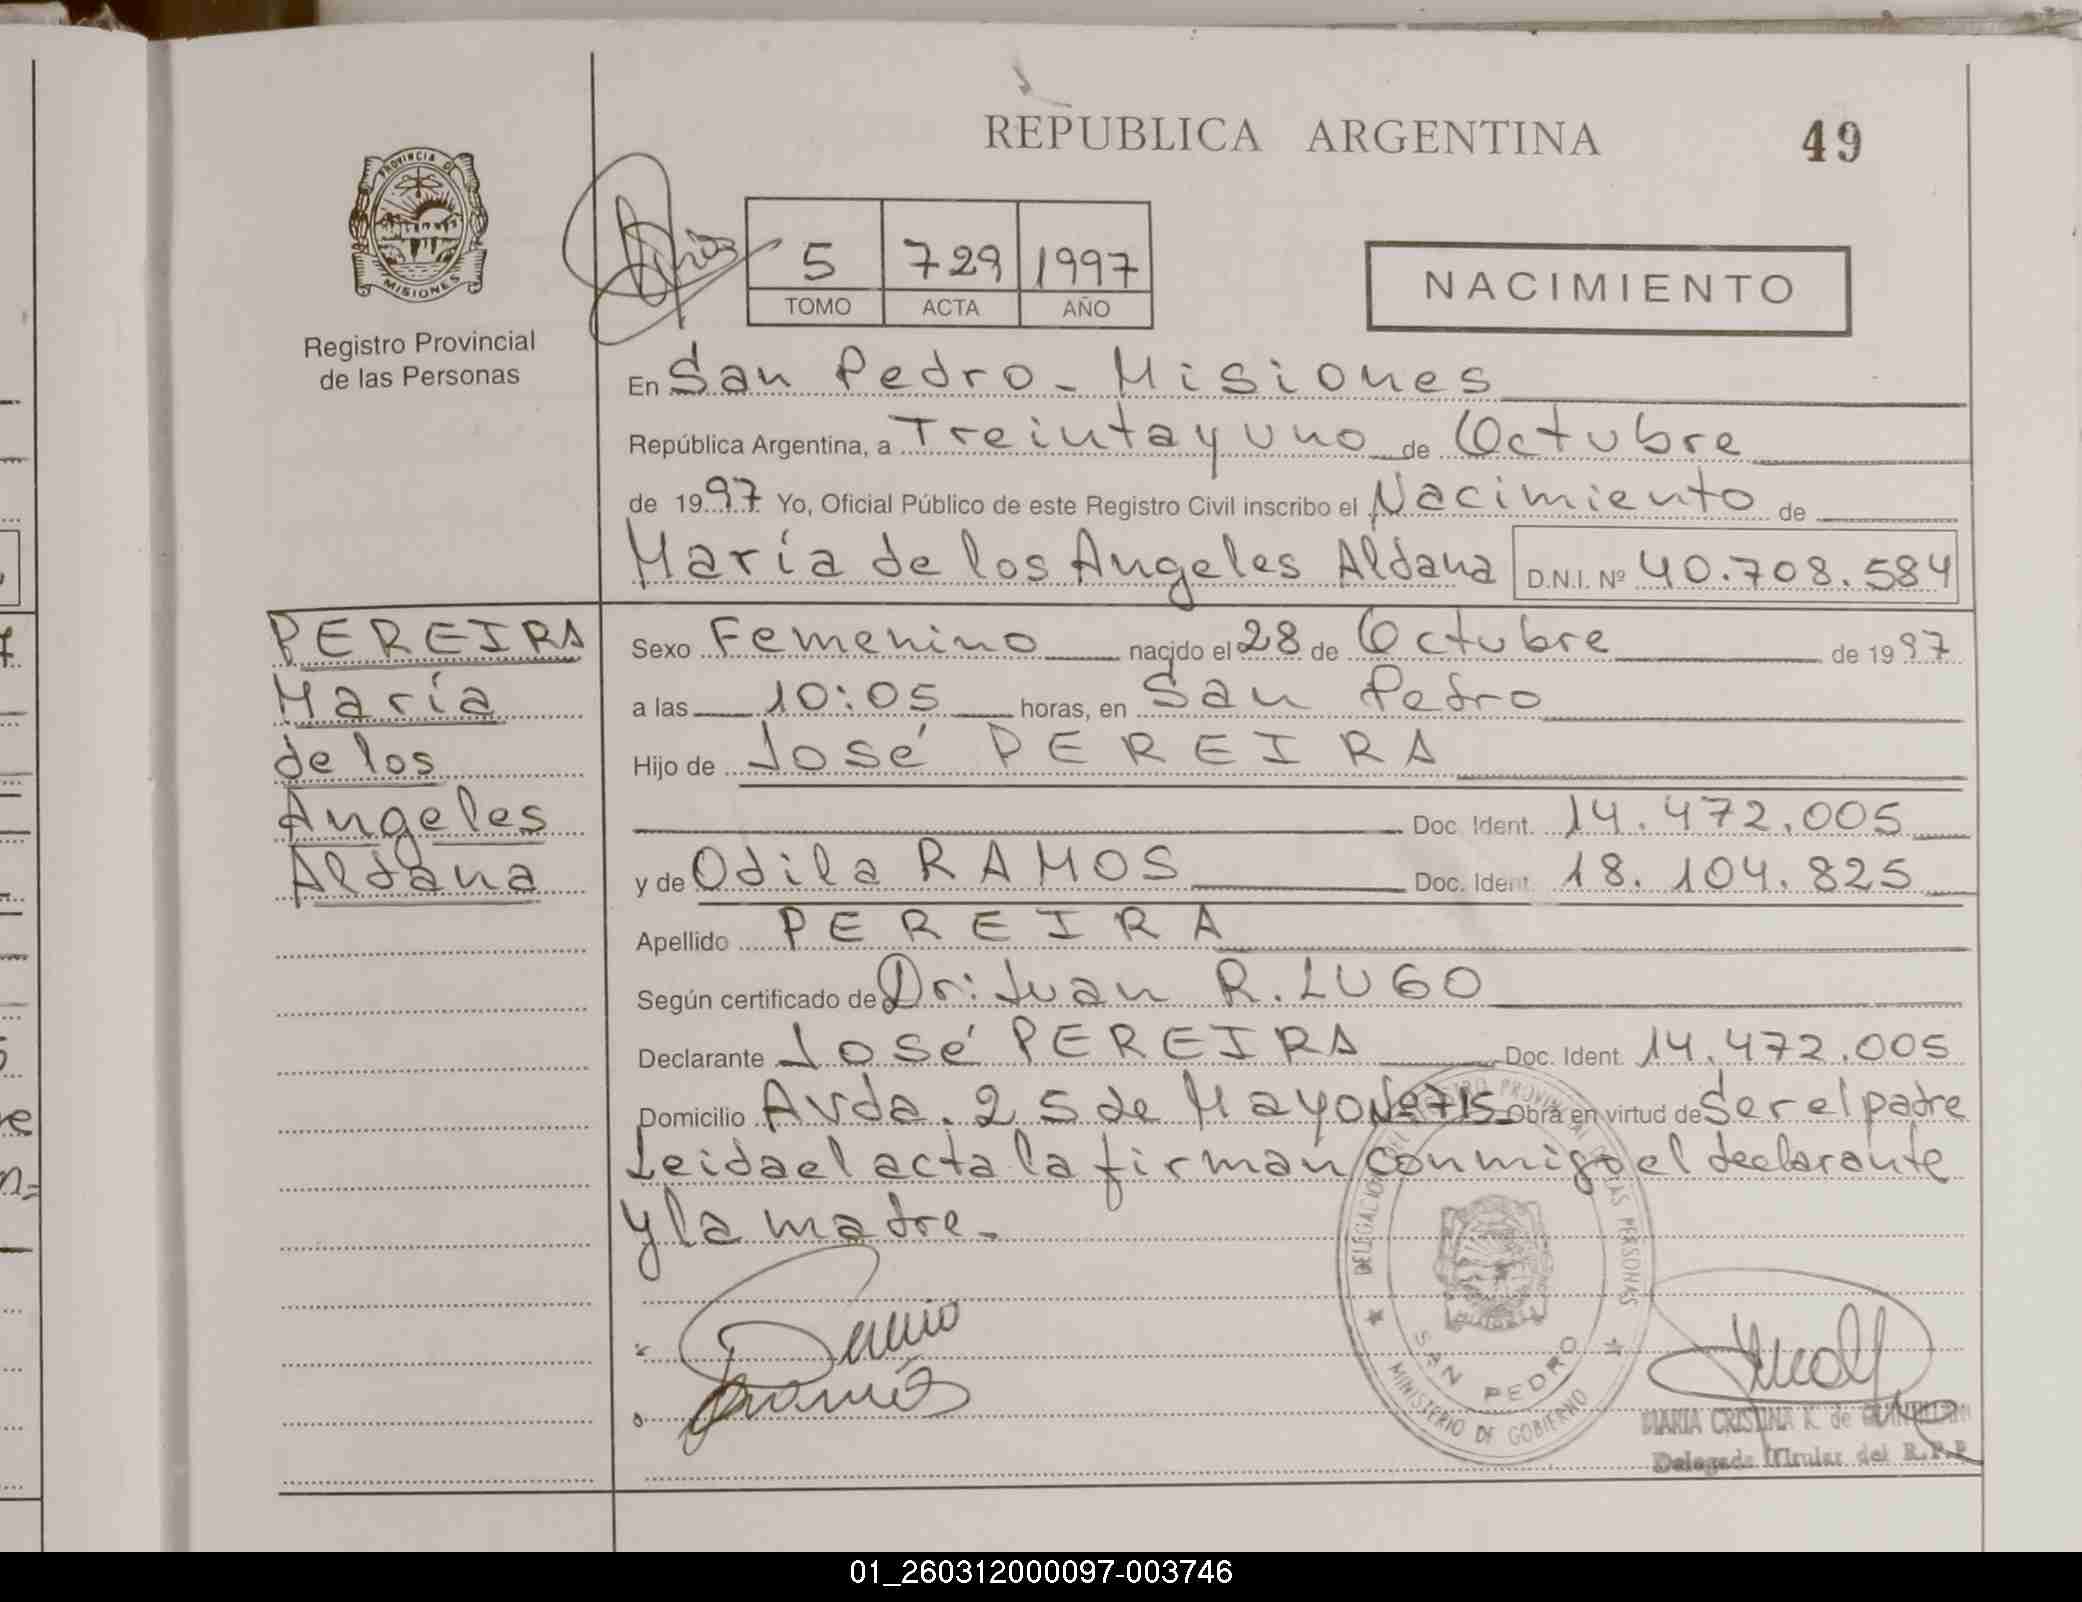 REPUBLICA ARGENTINA
49
PROVINCIA DE
MISIONES
Registro Provincial
de las Personas
5 729 1997
TOMO ACTA AÑO
NACIMIENTO
En San Pedro - Misiones
República Argentina, a Treinta y uno de Octubre
de 1997 Yo, Oficial Público de este Registro Civil inscribo el Nacimiento de
María de los Angeles Aldana D.N.I. Nº 40.708.584
PEREIRA
María
de los
Angeles
Aldana
Sexo Femenino nacido el 28 de Octubre de 1997
a las 10:05 horas, en San Pedro
Hijo de José PEREIRA
Doc. Ident. 14.472.005
y de Odila RAMOS Doc. Ident. 18.104.825
Apellido PEREIRA
Según certificado de Dr: Juan R. LUGO
Declarante José PEREIRA Doc. Ident. 14.472.005
Domicilio Avda. 25 de Mayo Nº 715 Obra en virtud de Ser el padre
Leida el acta la firman conmigo el declarante
y la madre.
DELEGACION DEL REGISTRO PROVINCIAL DE LAS PERSONAS
SAN PEDRO
MINISTERIO DE GOBIERNO
MARIA CRISTINA K. de
Delegada Titular del R.P.P.
01_260312000097-003746